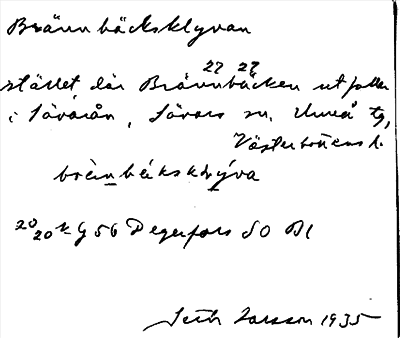 Brännbäcksklyvan
27 27
stället där Brännbäcken utfaller
i Sävarån, Sävars sn. Umeå tg,
Västerbottens l.
bräinbäksklýva
20/20 k G 56 Degerfors SO Bl
Seth Larsson 1935